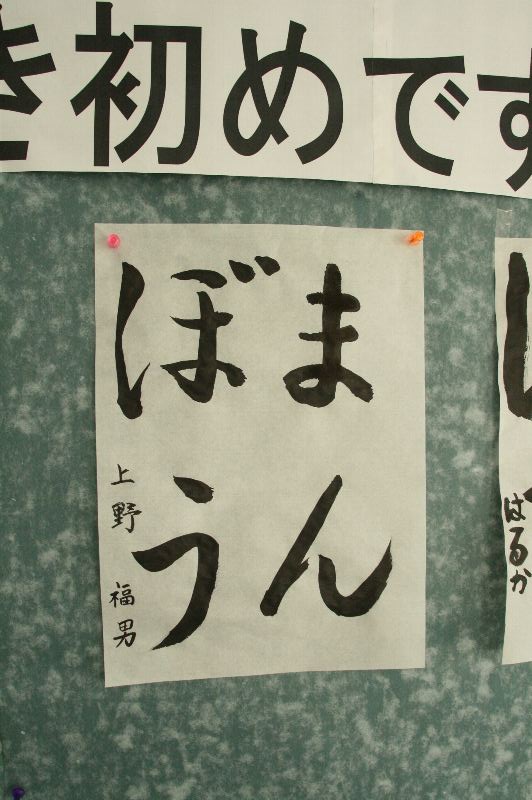 き初めです
まん
ぼう
上野 福男
はるか